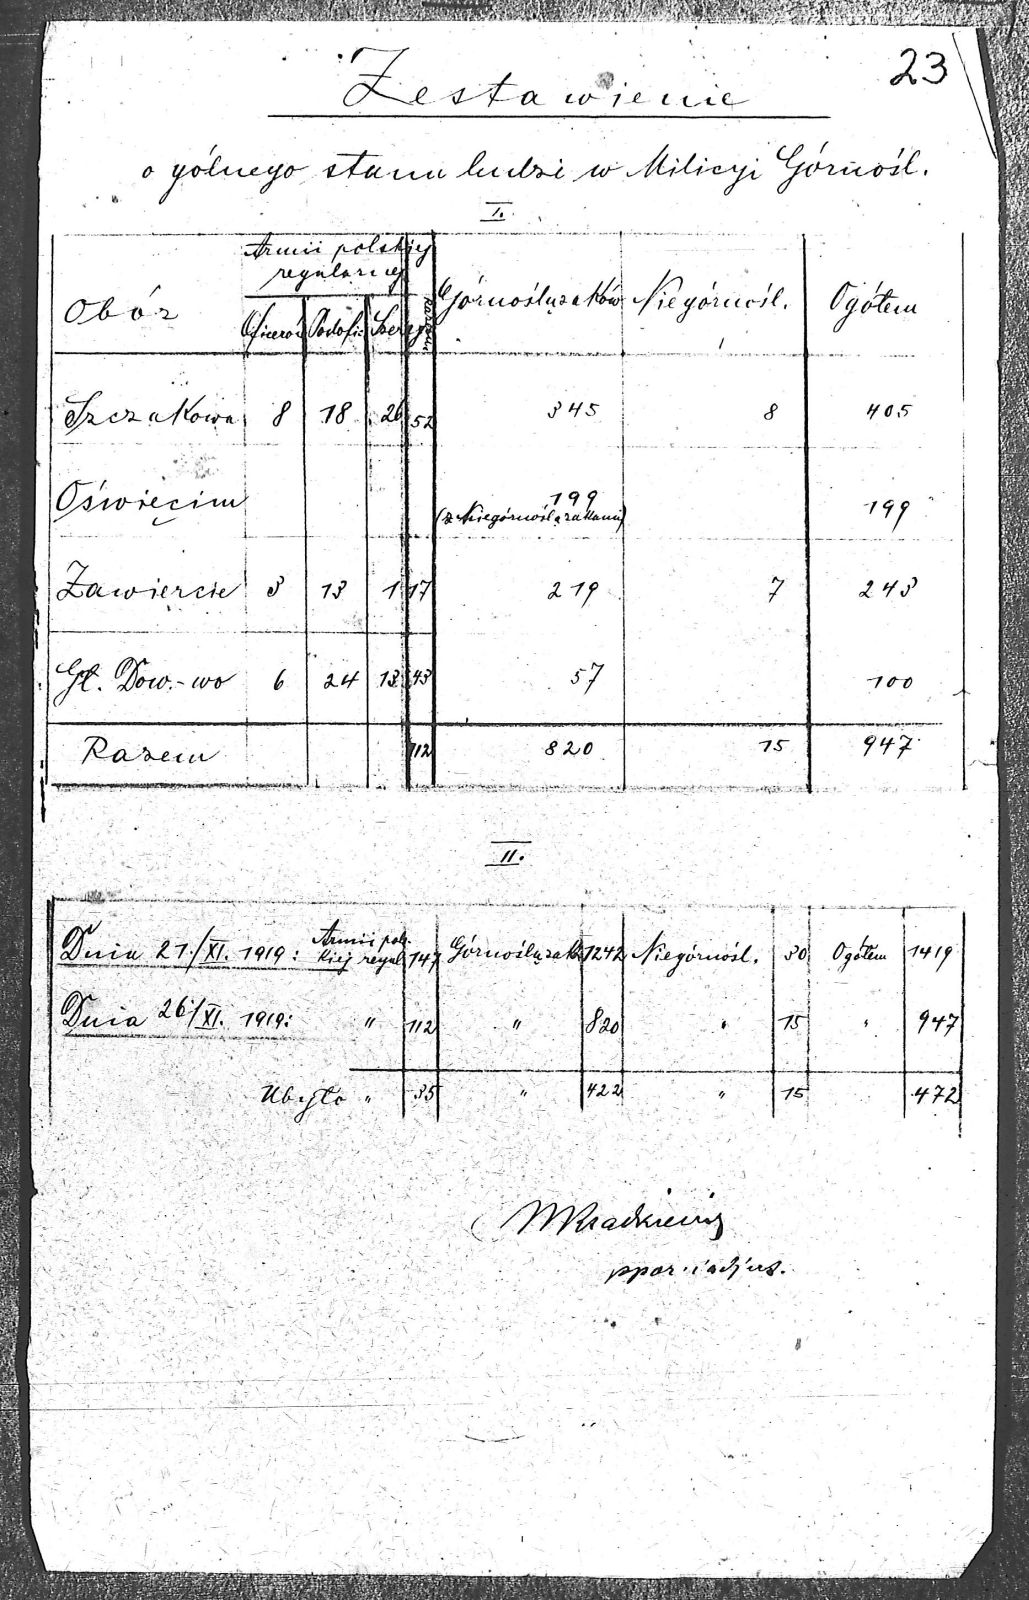 23
Zestawienie
ogólnego stanu ludzi w Milicyi Górnośl.
I.
Obóz Armii polskiej Razem Górnoślązaków Niegórnośl. Ogółem
regularnej
Oficerów Podofic Szereg
Szczakowa 8 18 26 52 345 8 405
Oświęcim 199 199
(z Niegórnoślązakami)
Zawiercie 3 13 1 17 219 7 243
Gł. Dow.-wo 6 24 13 43 57 100
Razem 112 820 15 947
II.
Dnia 21./XI. 1919: Armii pols. 147 Górnoślązak. 1242 Niegórnośl. 30 Ogółem 1419
kiej regul.
Dnia 26/XI. 1919: " 112 " 820 " 15 " 947
Ubyło " 35 " 422 " 15 472
ppor. i adjut.